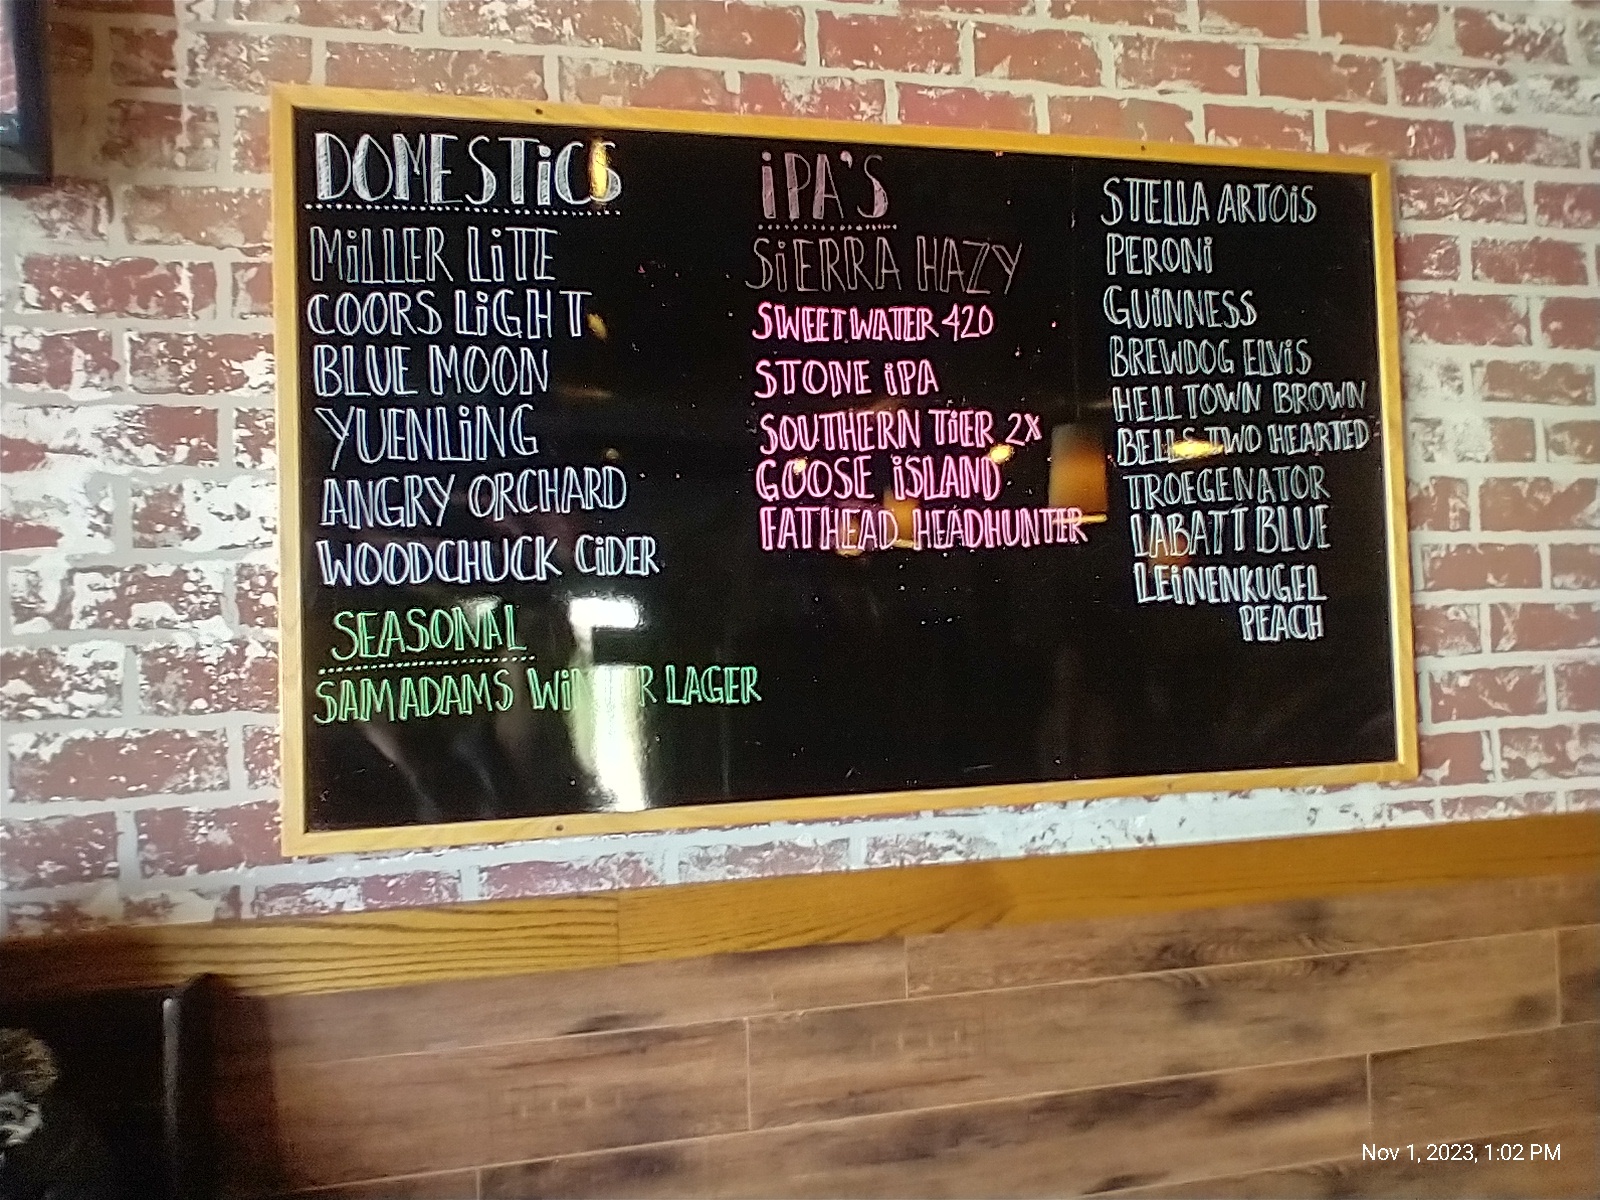 DOMESTiCS
MiLLER LiTE
COORS LiGHT
BLUE MOON
YUENLiNG
ANGRY ORCHARD
WOODCHUCK CiDER
SEASONAL
SAMADAMS WiNTER LAGER
iPA'S
SiERRA HAZY
SWEETWATER 420
STONE iPA
SOUTHERN TiER 2X
GOOSE iSLAND
FATHEAD HEADHUNTER
STELLA ARTOiS
PERONi
GUiNNESS
BREWDOG ELViS
HELLTOWN BROWN
BELLS TWO HEARTED
TROEGENATOR
LABATT BLUE
LEiNENKUGEL
PEACH
Nov 1, 2023, 1:02 PM